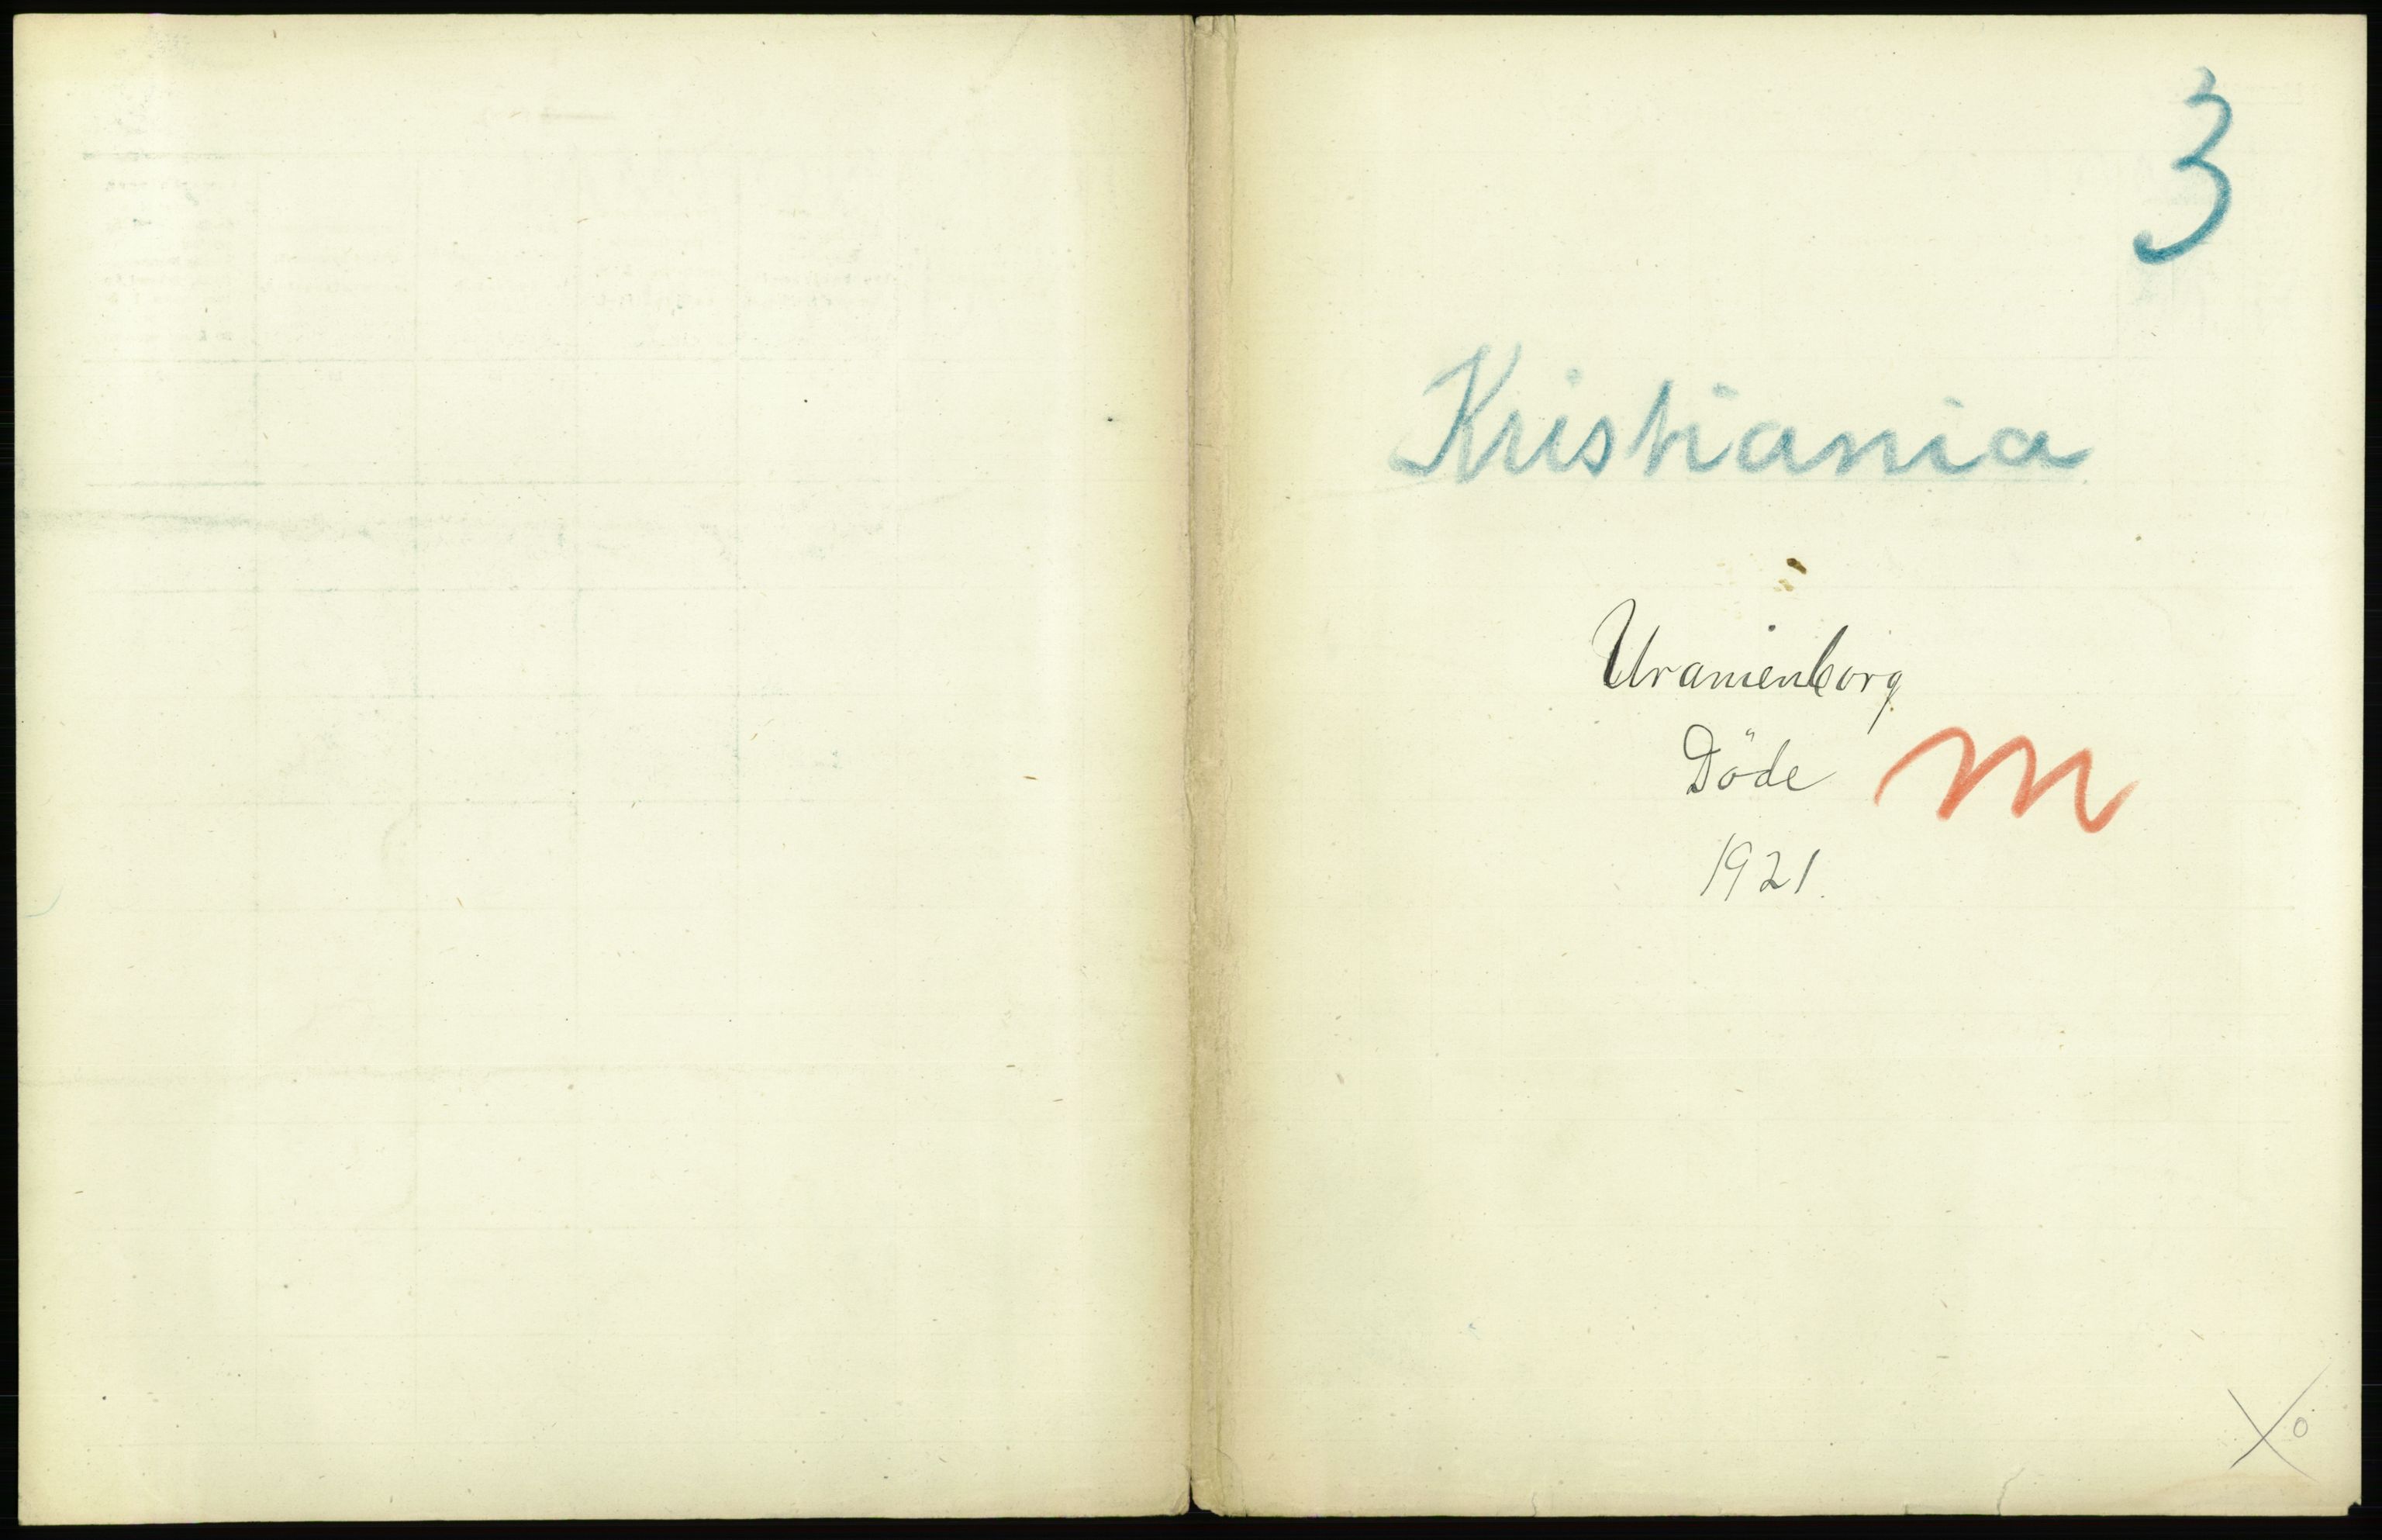 3
Kristiania
Uranienborg
Döde m
1921.
X o